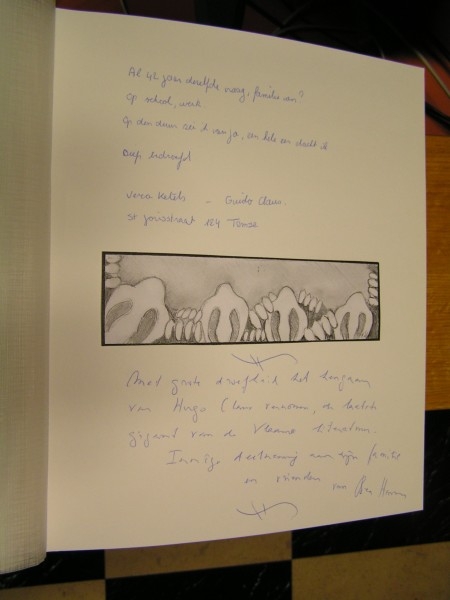 Al 42 jaar dezelfde vraag, familie van?
Op school, werk
Op den duur zei ik van ja, en
diep bedroefd
Vera Ketels - Guido Claus.
St Jorisstraat 184 Temse
Met grote droefheid het heengaan
van Hugo Claus vernomen, de laatste
gigant van de Vlaamse literatuur.
Innige deelneming aan zijn familie
en vrienden van